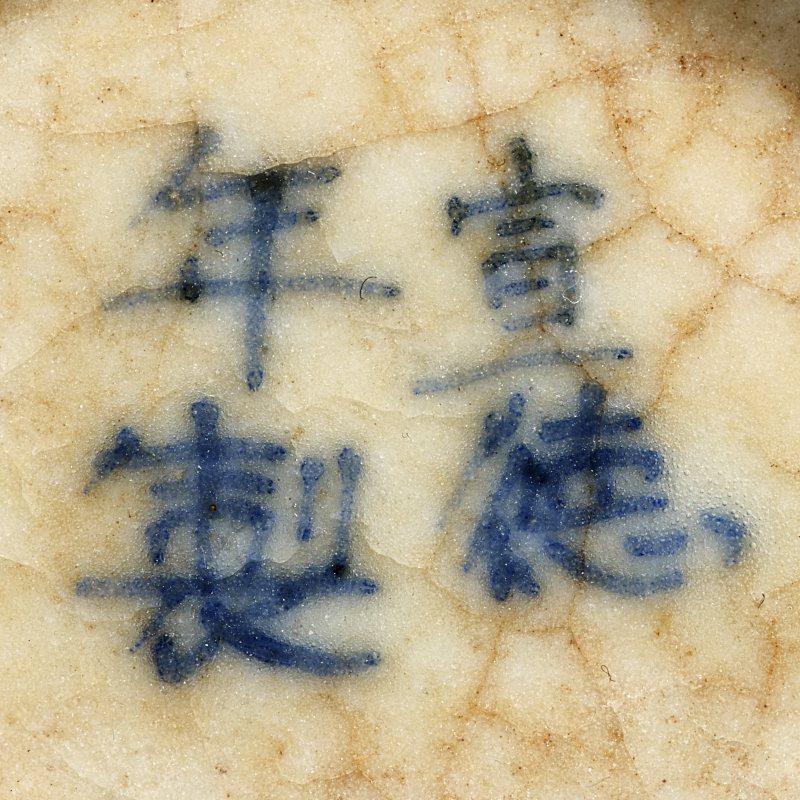 宣德
年製